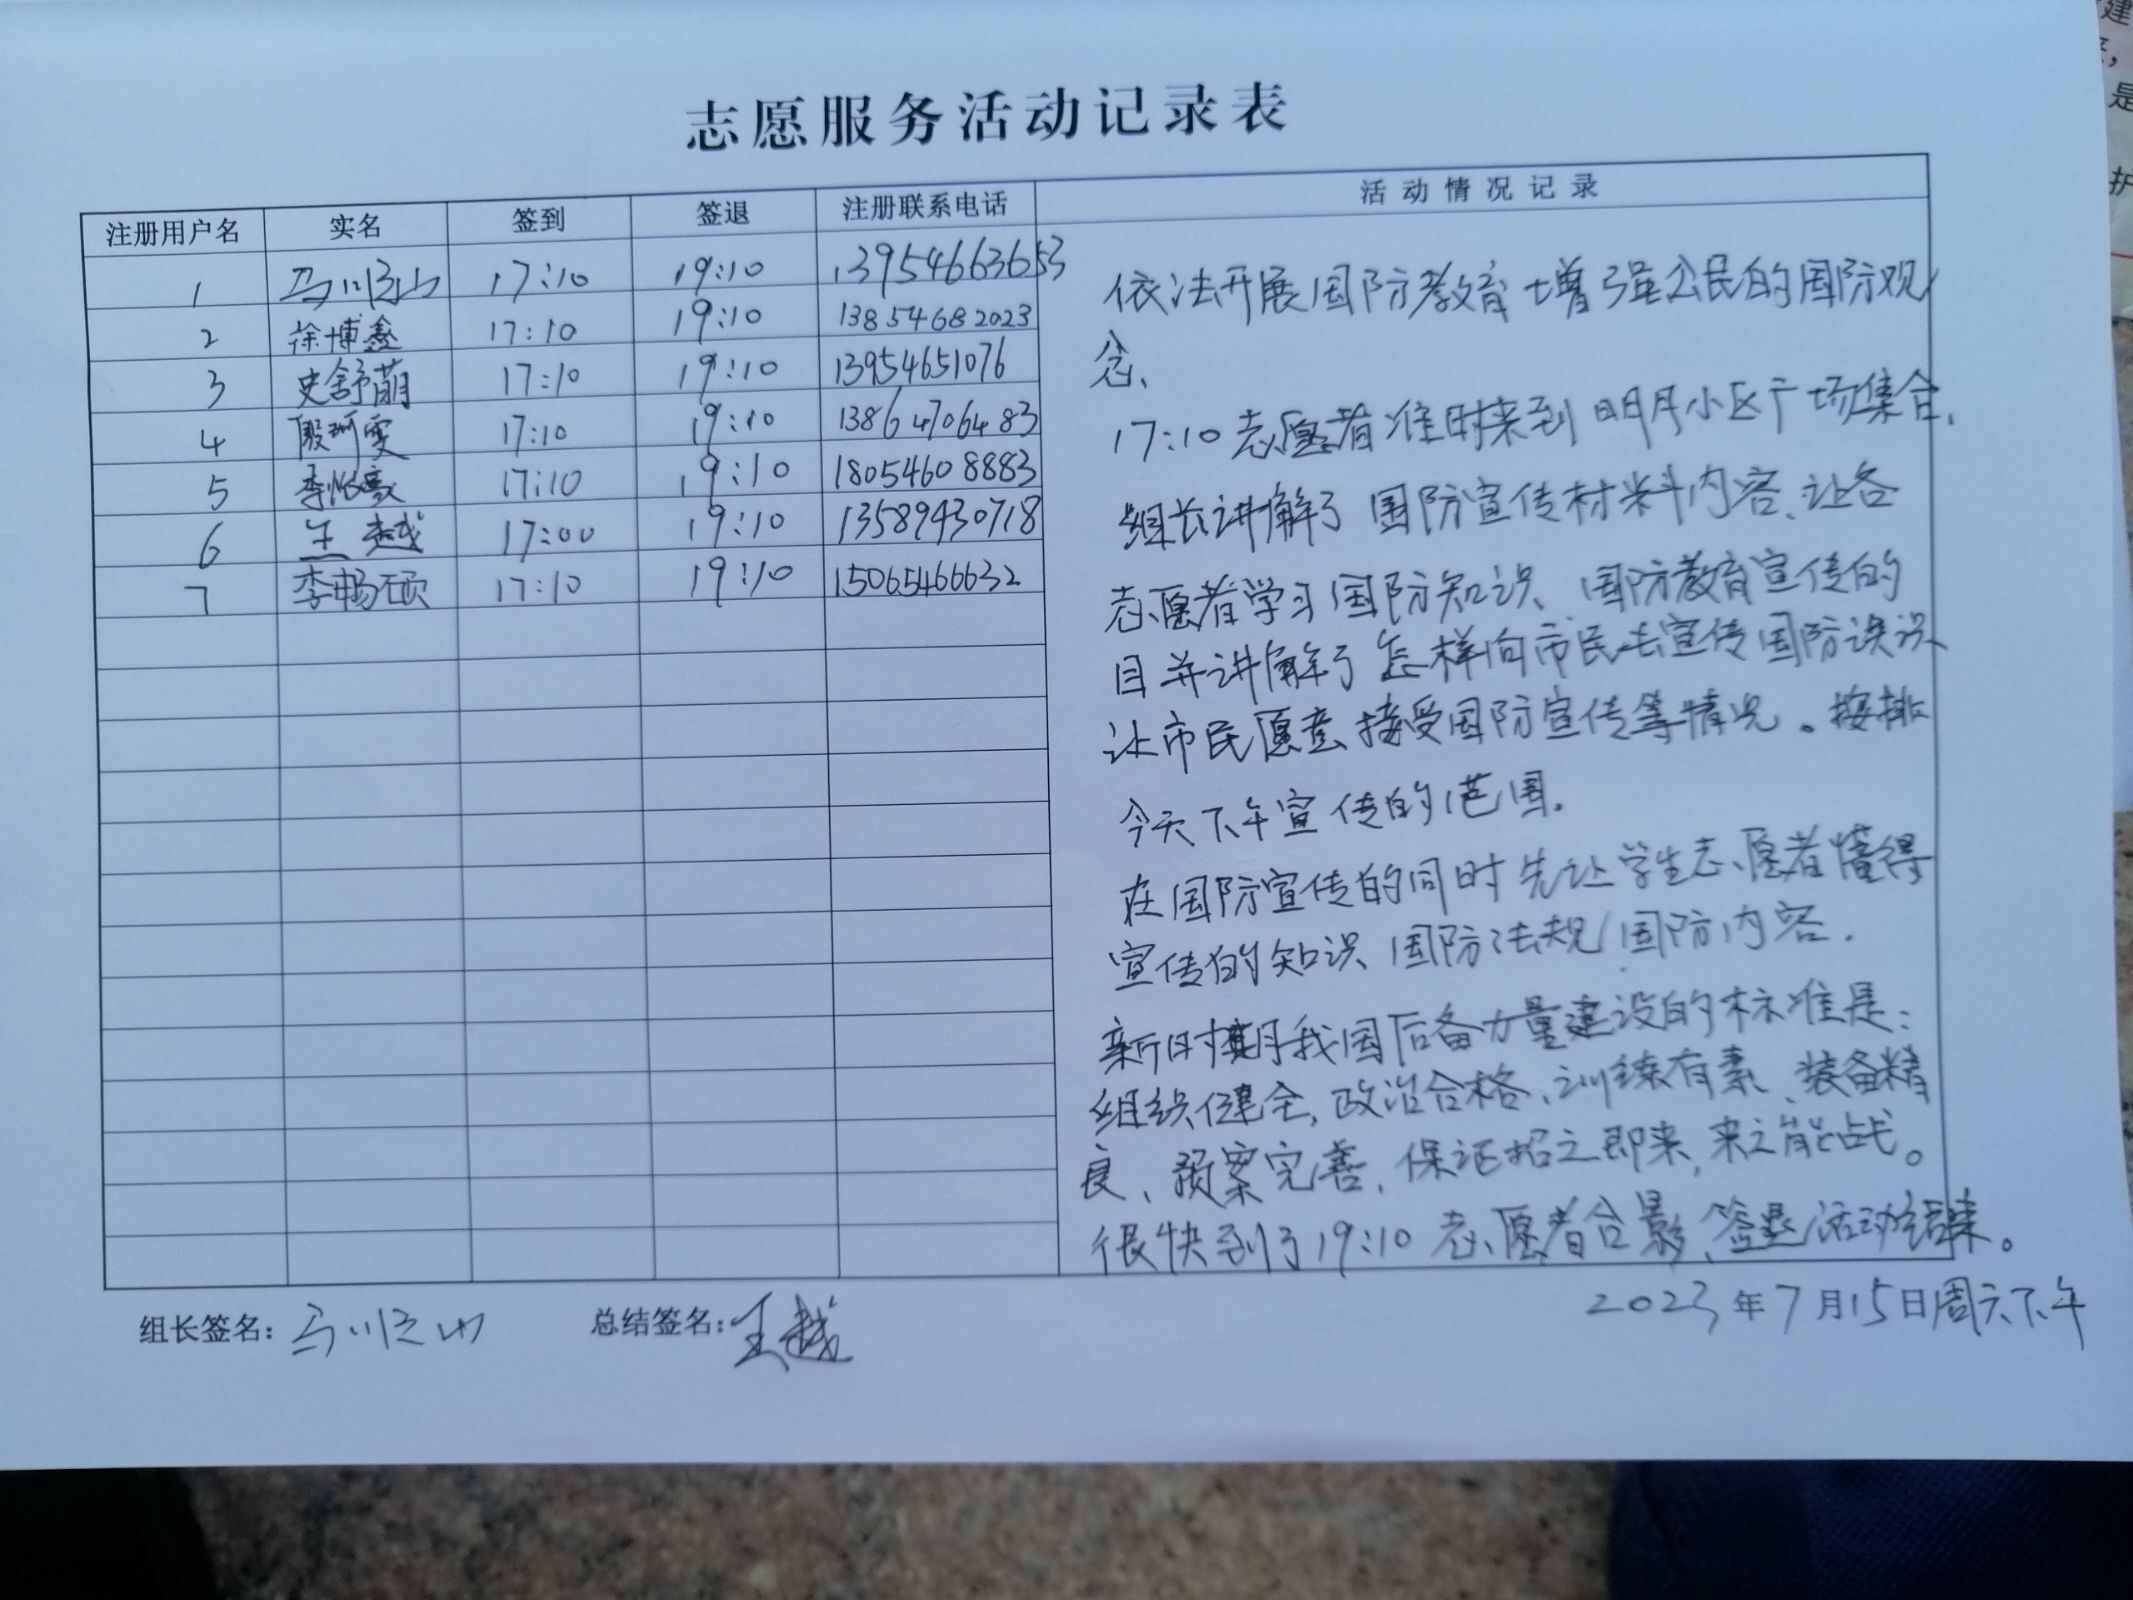 志愿服务活动记录表
注册用户名 实名 签到 签退 注册联系电话 活动情况记录
1 17:10 19:10 13954663653
2 徐博鑫 17:10 19:10 13854682023
3 史舒萌 17:10 19:10 13954651076
4 殷珂雯 17:10 19:10 13864706483
5 李怡豪 17:10 19:10 18054608883
6 王越 17:00 19:10 13589430718
7 李畅硕 17:10 19:10 15065466632
依法开展国防教育增强公民的国防观
念、
17:10志愿者准时来到明月小区广场集合,
组长讲解了国防宣传材料内容、让各
志愿者学习国防知识、国防教育宣传的
目并讲解了怎样向市民去宣传国防
让市民愿意接受国防宣传等情况。按排
今天下午宣传的范围。
在国防宣传的同时先让学生志愿者懂得
宣传的知识、国防法规/国防内容.
新时期我国后备力量建设的标准是:
组织健全,政治合格、训练有素、装备精
良、预案完善,保证招之即来,来之能战。
很快到了19:10志愿者合影、签退活动结束。
组长签名: 总结签名:王越
2023年7月15日周六下午
建
是
护